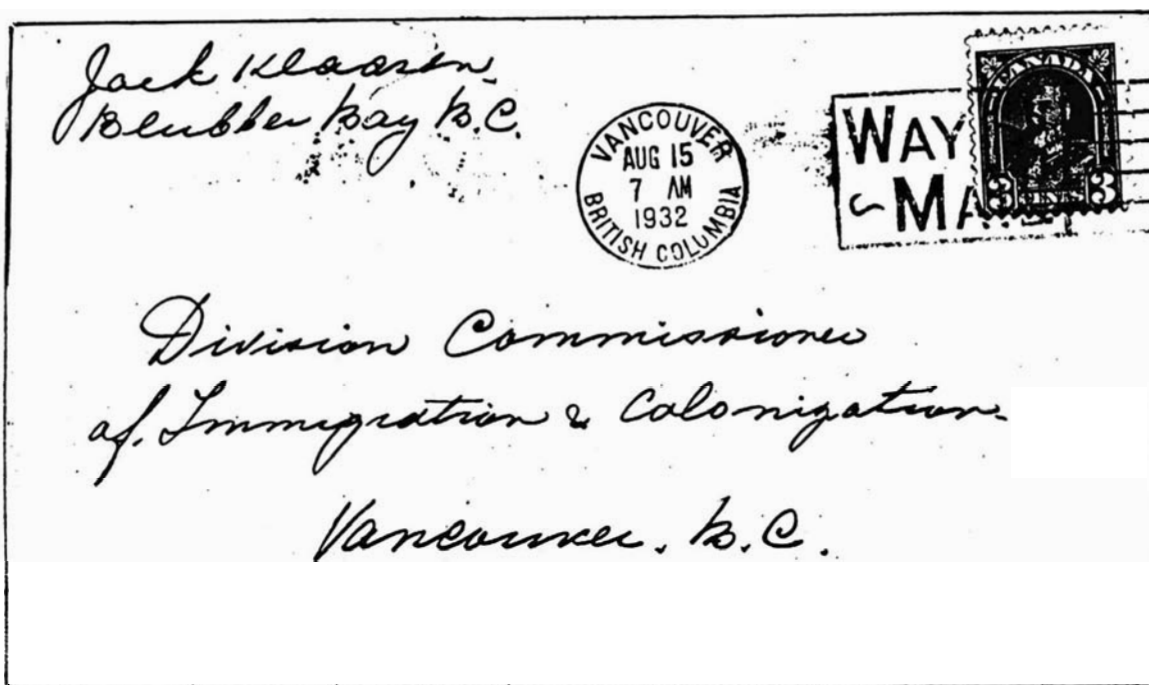 Jack Klaasen
Blubber Bay B.C.
VANCOUVER
AUG 15
7 AM
1932
BRITISH COLUMBIA
WAY
MA
CANADA
3 3
Division Commissioner
of. Immigration & Colonization
Vancouver. B.C.